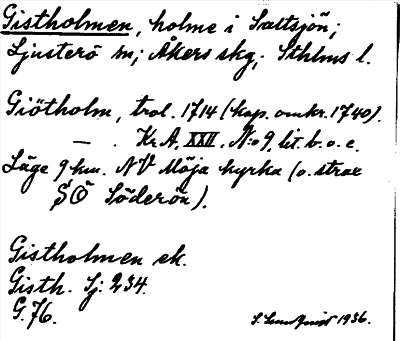 Gistholmen, holme i Saltsjön;
Ljusterö sn; Åkers skg; Sthlms l.
Giötholm, trol. 1714 (kop. omkr. 1740).
— . Kr.A, XXII, No 9, lit. b. o. c.
Läge 9 km. NV Möja kyrka (o. strax
SO Söderön).
Gistholmen ek.
Gisth. Sj: 234.
G. 76.
S. Lundqvist 1936.